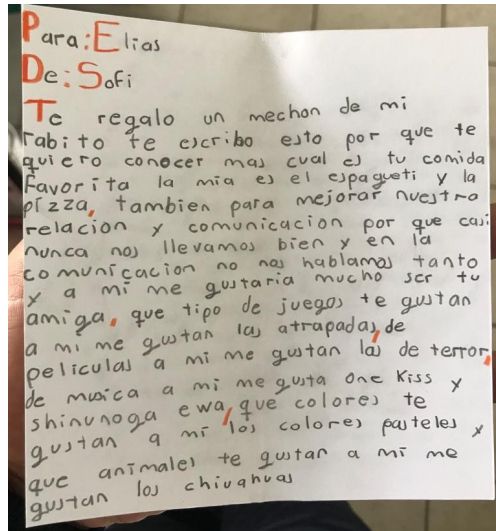 Para: Elias
De: Sofi
Te regalo un mechon de mi
rabito te escribo esto por que te
quiero conocer mas cual es tu comida
Favorita la mia es el espagueti y la
pizza, tambien para mejorar nuestra
relacion y comunicacion por que casi
nunca nos llevamos bien y en la
comunicacion no nos hablamos tanto
y a mi me gustaria mucho ser tu
amiga, que tipo de juegos te gustan
a mi me gustan las atrapadas, de
peliculas a mi me gustan las de terror,
de musica a mi me gusta one Kiss y
shinunoga ewa, que colores te
gustan a mi los colores pasteles y
que animales te gustan a mi me
gustan los chiuahuas